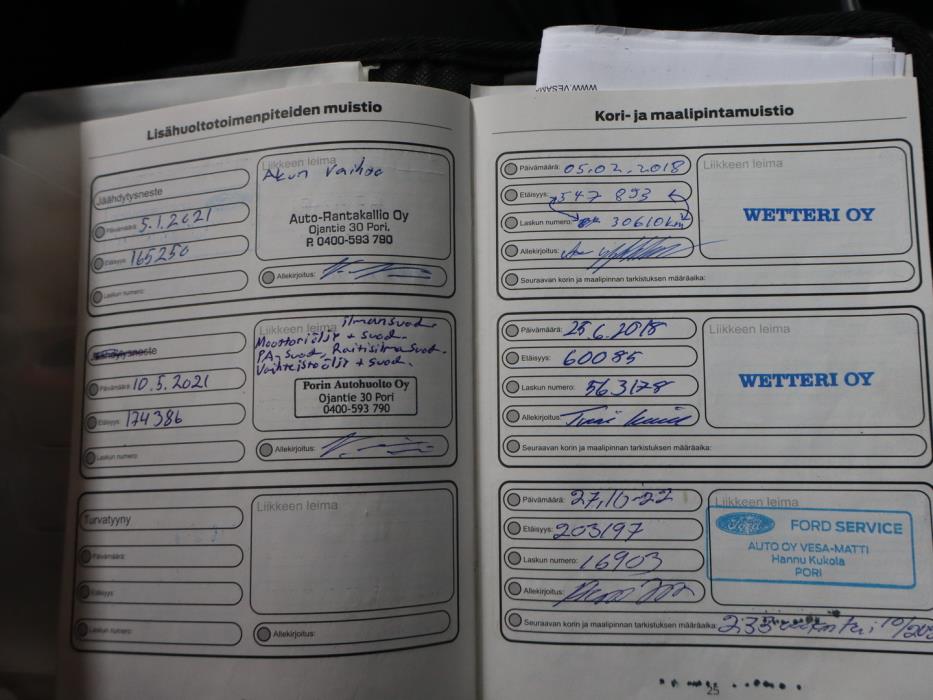 WWW.VESAM
Lisähuoltotoimenpiteiden muistio
Jäähdytysneste
Päivämäärä: 5.1.2021
Etäisyys: 165250
Laskun numero:
Liikkeen leima
Akun vaihto
Auto-Rantakallio Oy
Ojantie 30 Pori,
P. 0400-593 790
Allekirjoitus:
Jäähdytysneste
Päivämäärä: 10.5.2021
Etäisyys: 174386
Laskun numero:
Liikkeen leima ilmansuod.
Moottoriöljy + suod.
PA-suod, Raitisilmasuod.
Vaihteistoöljy + suod.
Porin Autohuolto Oy
Ojantie 30 Pori
0400-593 790
Allekirjoitus:
Turvatyyny
Päivämäärä:
Etäisyys:
Laskun numero:
Liikkeen leima
Allekirjoitus:
Kori- ja maalipintamuistio
Päivämäärä: 05.02.2018
Etäisyys: 547 893
Laskun numero: 30610km
Allekirjoitus:
Liikkeen leima
WETTERI OY
Seuraavan korin ja maalipinnan tarkistuksen määräaika:
Päivämäärä: 25.6.2018
Etäisyys: 60085
Laskun numero: 563178
Allekirjoitus:
Liikkeen leima
WETTERI OY
Seuraavan korin ja maalipinnan tarkistuksen määräaika:
Päivämäärä: 27,10-22
Etäisyys: 203197
Laskun numero: 16903
Allekirjoitus:
Liikkeen leima
Ford FORD SERVICE
AUTO OY VESA-MATTI
Hannu Kukola
PORI
Seuraavan korin ja maalipinnan tarkistuksen määräaika: 233 10/202
25